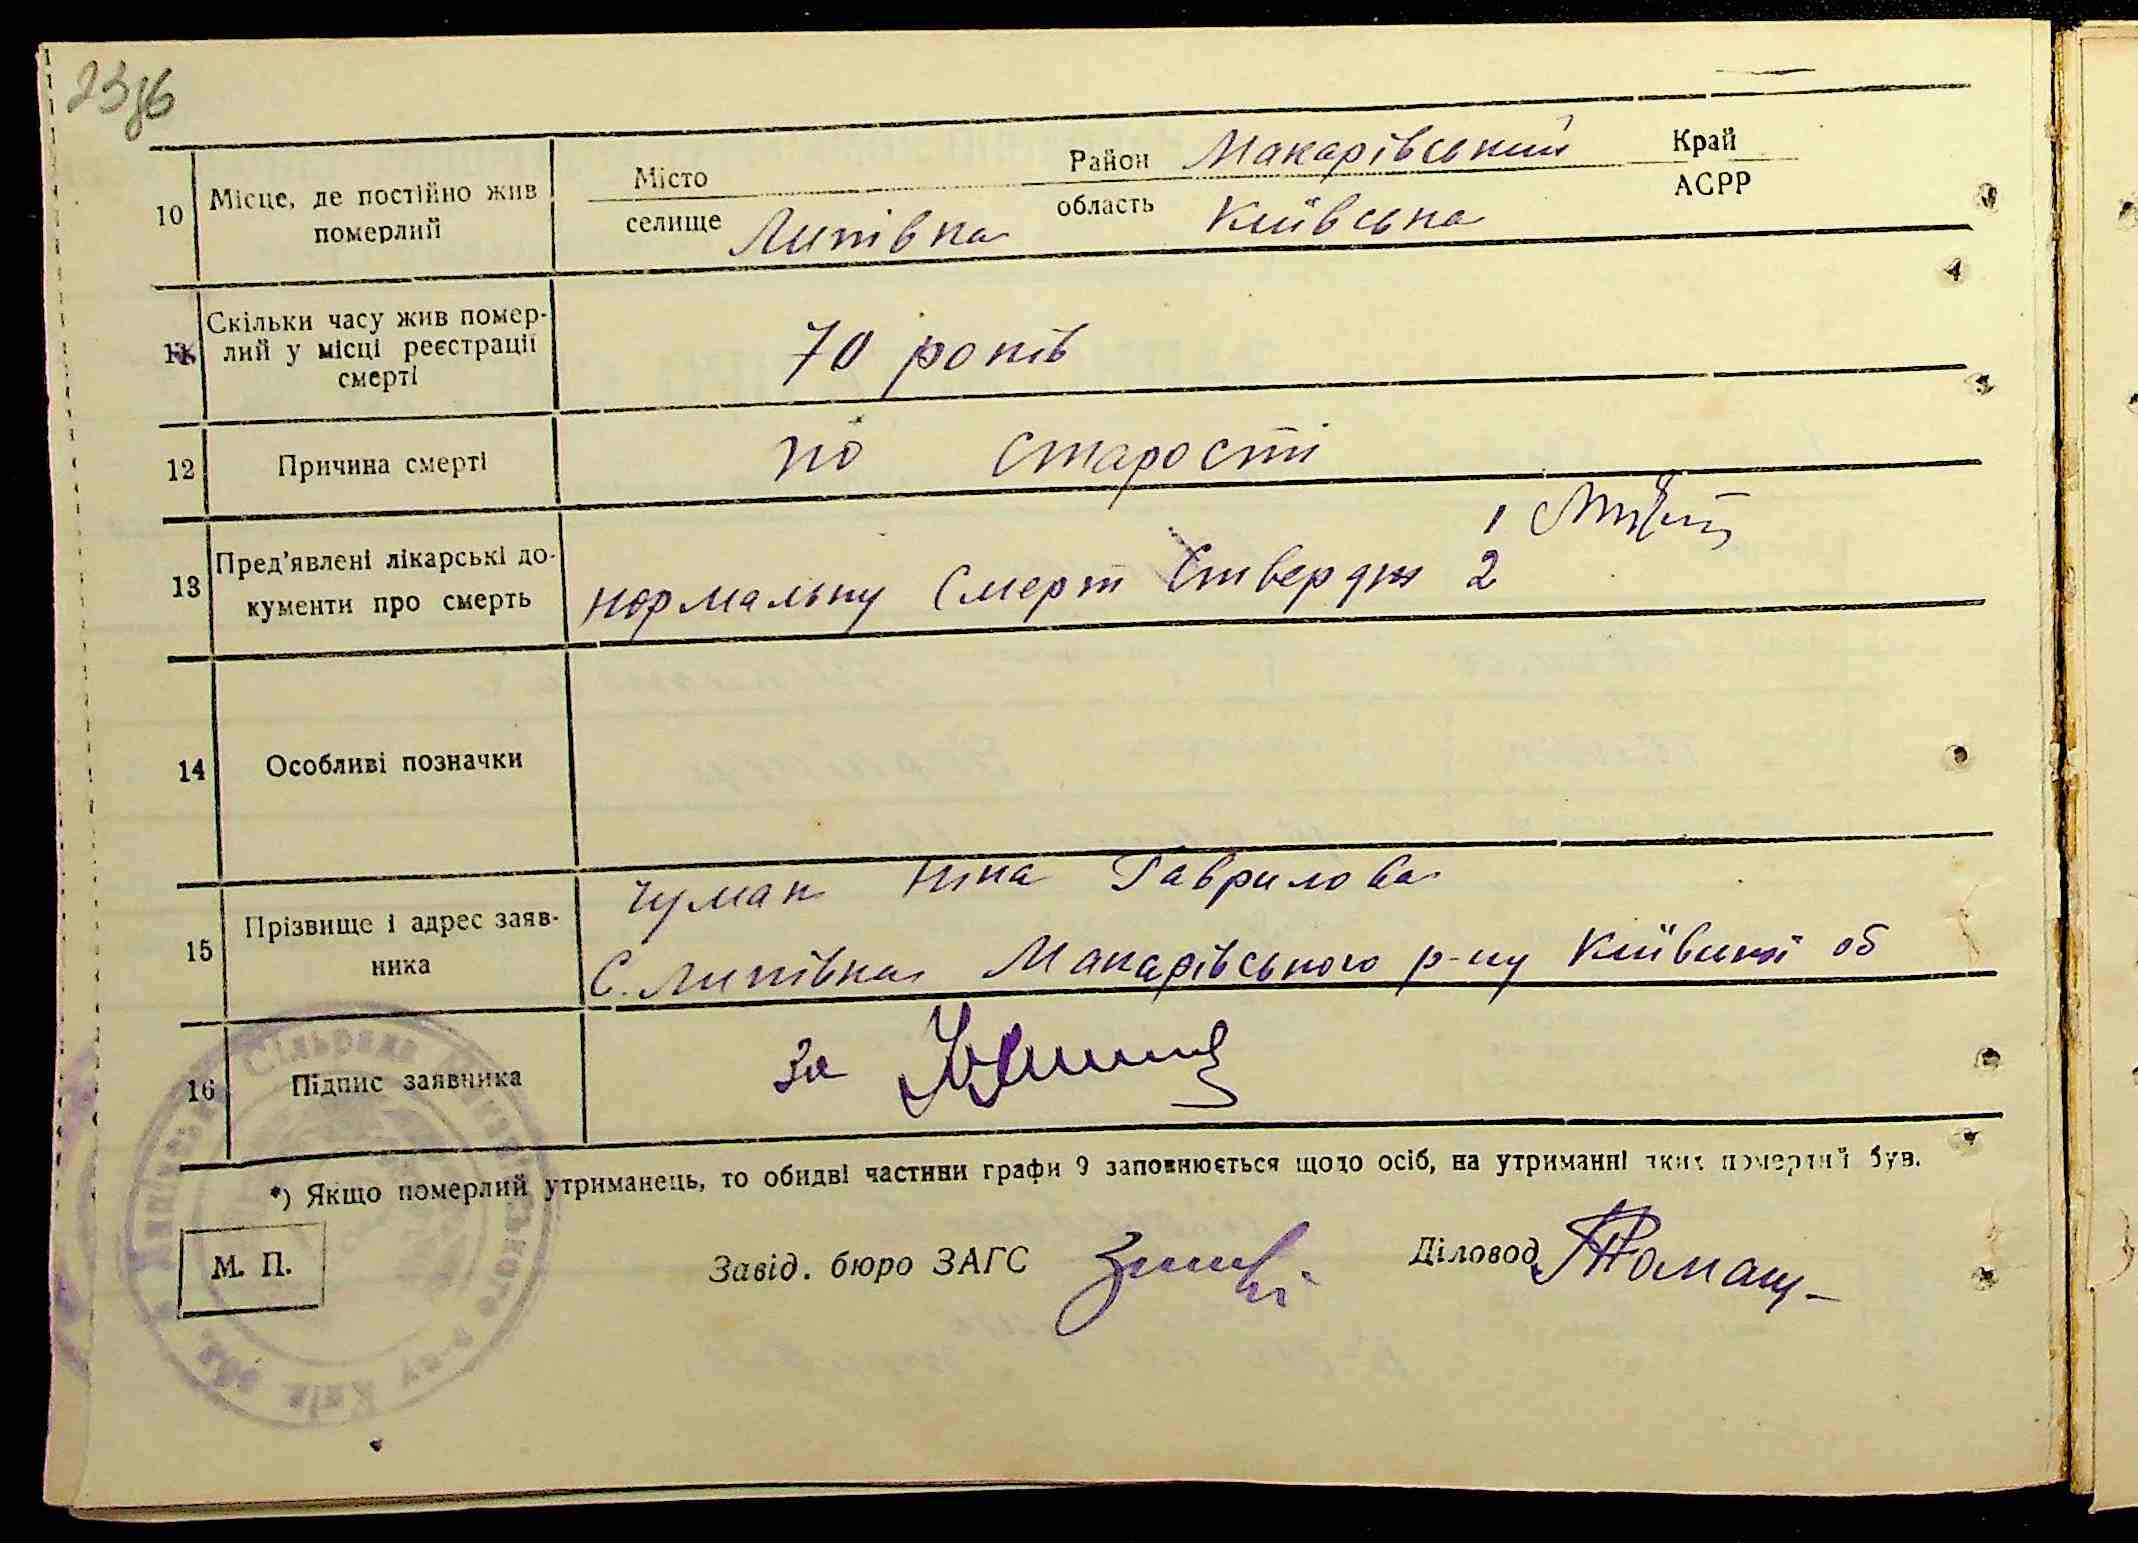 10 Місце, де постійно жив померлий
Місто Район Макарівський Край
селище Липівка область Київська АСРР
11 Скільки часу жив помер-
лий у місці реєстрації
смерті
70 років
12 Причина смерті
по старості
13 Пред'явлені лікарські до-
кументи про смерть
1
нормальну смерт стверджу 2
14 Особливі позначки
15 Прізвище і адрес заяв-
ника
Чумак Ніна Гаврилова
С. Липівка Макарівського р-ну Київської об
16 Підпис заявника
За
*) Якщо померлий утриманець, то обидві частини графи 9 заповнюється щодо осіб, на утриманні яких померлий був.
М. П.
Завід. бюро ЗАГС
Діловод
Сільрада Макарівського р-ну Київ. обл.